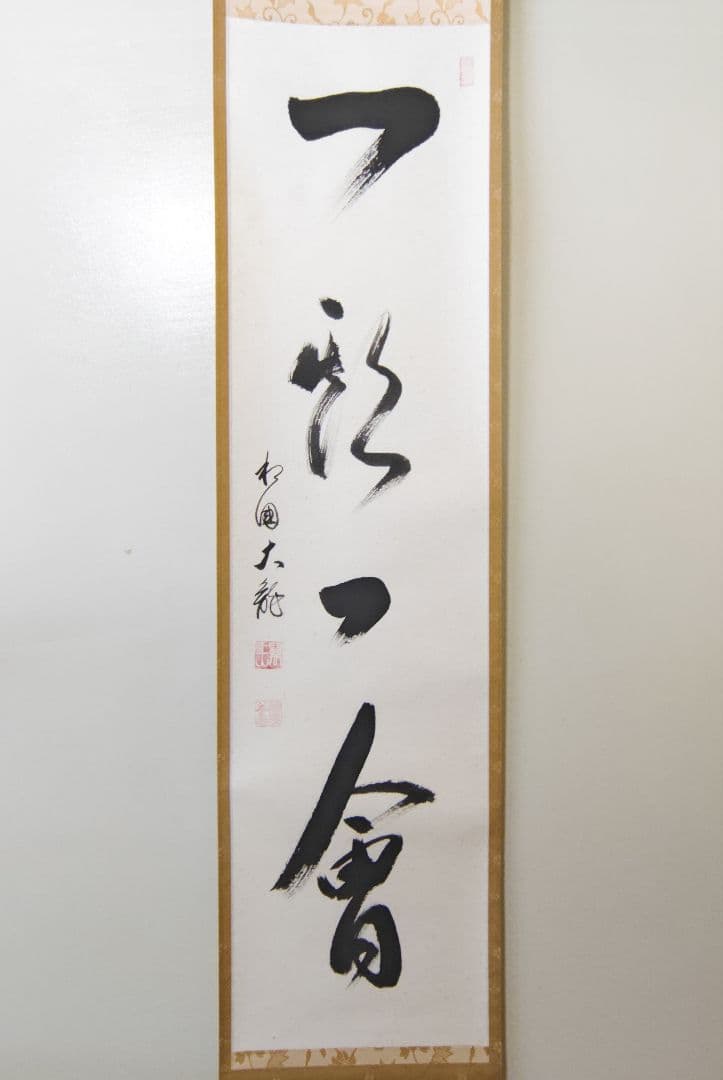 一期一會
相國大龍